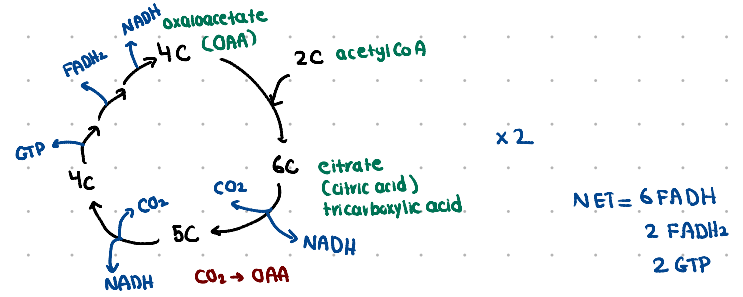 NADH
oxaloacetate
(OAA)
4C
FADH₂
2C acetyl CoA
GTP
x2
6C citrate
(citric acid)
tricarboxylic acid
4C
CO₂
CO₂
5C
NADH
NADH
CO₂ → OAA
NET = 6 FADH
2 FADH₂
2 GTP